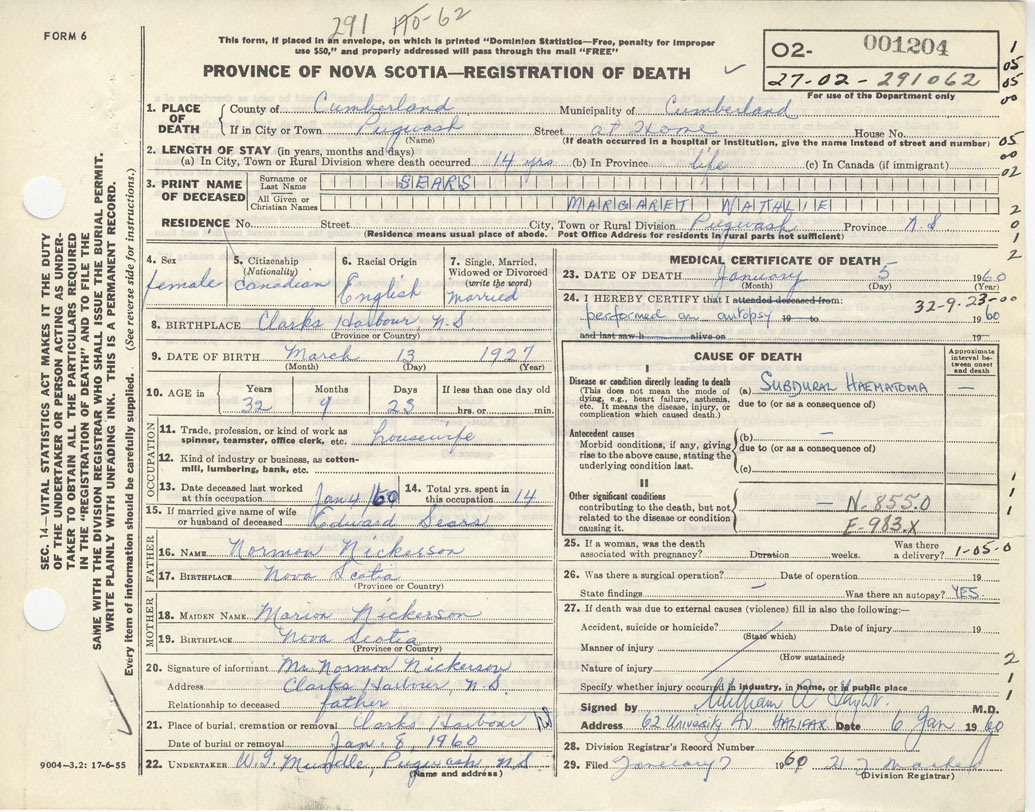 291 40-62
FORM 6
This form, if placed in an envelope, on which is printed "Dominion Statistics—Free, penalty for improper
use $50," and properly addressed will pass through the mail "FREE"
PROVINCE OF NOVA SCOTIA—REGISTRATION OF DEATH
02- 001204
27-02-291062
For use of the Department only
1
05
05
00
1. PLACE OF DEATH
County of Cumberland Municipality of Cumberland
If in City or Town Pugwash Street at Home House No.
(Name) (If death occurred in a hospital or Institution, give the name instead of street and number)
05
00
02
2. LENGTH OF STAY (in years, months and days)
(a) In City, Town or Rural Division where death occurred 14 yrs (b) In Province life (c) In Canada (if immigrant)
3. PRINT NAME OF DECEASED
Surname or Last Name SEARS
All Given or Christian Names MARGARET NATHLIE
2
0
1
2
RESIDENCE No. Street City, Town or Rural Division Pugwash Province N.S
(Residence means usual place of abode. Post Office Address for residents in rural parts not sufficient)
4. Sex
female
5. Citizenship
(Nationality)
Canadian
6. Racial Origin
English
7. Single, Married,
Widowed or Divorced
(write the word)
married
8. BIRTHPLACE Clarks Harbour, N.S
(Province or Country)
9. DATE OF BIRTH March 13 1927
(Month) (Day) (Year)
10. AGE in
Years Months Days If less than one day old
32 9 23 hrs. or min.
OCCUPATION
11. Trade, profession, or kind of work as
spinner, teamster, office clerk, etc. housewife
12. Kind of industry or business, as cotton-
mill, lumbering, bank, etc.
13. Date deceased last worked
at this occupation Jan 4/60
14. Total yrs. spent in
this occupation 14
15. If married give name of wife
or husband of deceased Edward Sears
FATHER
16. NAME Norman Nickerson
17. BIRTHPLACE Nova Scotia
(Province or Country)
MOTHER
18. MAIDEN NAME Marion Nickerson
19. BIRTHPLACE Nova Scotia
(Province or Country)
20. Signature of informant Mr. Norman Nickerson
Address Clarks Harbour, N.S.
Relationship to deceased father
21. Place of burial, cremation or removal Clarks Harbour NS
Date of burial or removal Jan. 8, 1960
22. UNDERTAKER W.J. Mundle, Pugwash N.S
(Name and address)
MEDICAL CERTIFICATE OF DEATH
23. DATE OF DEATH January 5 1960
(Month) (Day) (Year)
24. I HEREBY CERTIFY that I attended deceased from:
32-9-23-00
performed an autopsy 19 to 1960
and last saw h alive on 19
CAUSE OF DEATH
Approximate
interval be-
tween onset
and death
I
Disease or condition directly leading to death
(This does not mean the mode of
dying, e.g., heart failure, asthenia,
etc. It means the disease, injury, or
complication which caused death.)
(a) SUBDURAL HAEMATOMA —
due to (or as a consequence of)
Antecedent causes
Morbid conditions, if any, giving
rise to the above cause, stating the
underlying condition last.
(b) —
due to (or as a consequence of)
(c)
II
Other significant conditions
contributing to the death, but not
related to the disease or condition
causing it.
— N-855.0
E-983.X
1
1
1
25. If a woman, was the death
associated with pregnancy? Duration weeks. Was there
a delivery? 1-05-0
26. Was there a surgical operation? Date of operation 19
State findings — Was there an autopsy? YES.
27. If death was due to external causes (violence) fill in also the following:—
Accident, suicide or homicide? Date of injury 19
(State which)
Manner of injury
(How sustained)
Nature of injury
Specify whether injury occurred in industry, in home, or in public place
2
1
1
Signed by William A Taylor. M.D.
Address 62 University Av HALIFAX Date 6 Jan 1960
28. Division Registrar's Record Number
29. Filed January 7 1960
(Division Registrar)
SEC. 14—VITAL STATISTICS ACT MAKES IT THE DUTY
OF THE UNDERTAKER OR PERSON ACTING AS UNDER-
TAKER TO OBTAIN ALL THE PARTICULARS REQUIRED
IN THE "REGISTRATION OF DEATH" AND TO FILE THE
SAME WITH THE DIVISION REGISTRAR WHO SHALL ISSUE THE BURIAL PERMIT.
WRITE PLAINLY WITH UNFADING INK. THIS IS A PERMANENT RECORD.
Every item of information should be carefully supplied. (See reverse side for instructions.)
9004-3.2: 17-6-55